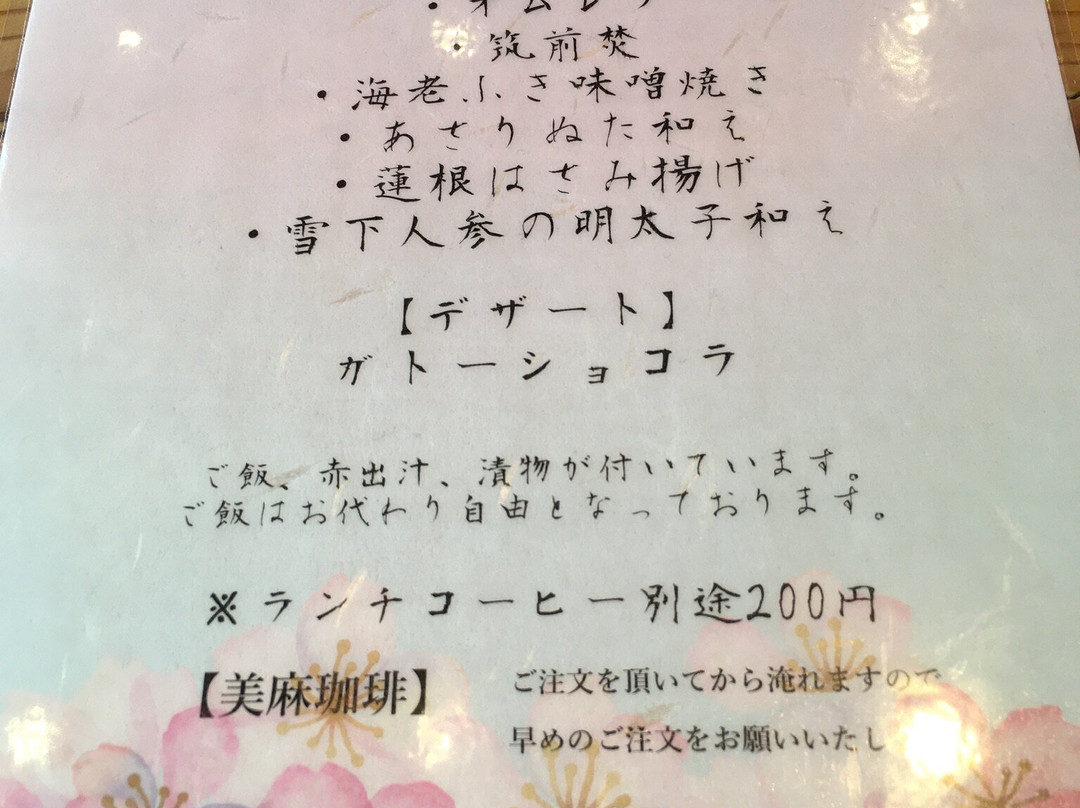 ・オムレツ
・筑前焚
・海老ふき味噌焼き
・あさりぬた和え
・蓮根はさみ揚げ
・雪下人参の明太子和え
【デザート】
ガトーショコラ
ご飯、赤出汁、漬物が付いています。
ご飯はお代わり自由となっております。
※ランチコーヒー別途200円
【美麻珈琲】
ご注文を頂いてから淹れますので
早めのご注文をお願いいたし